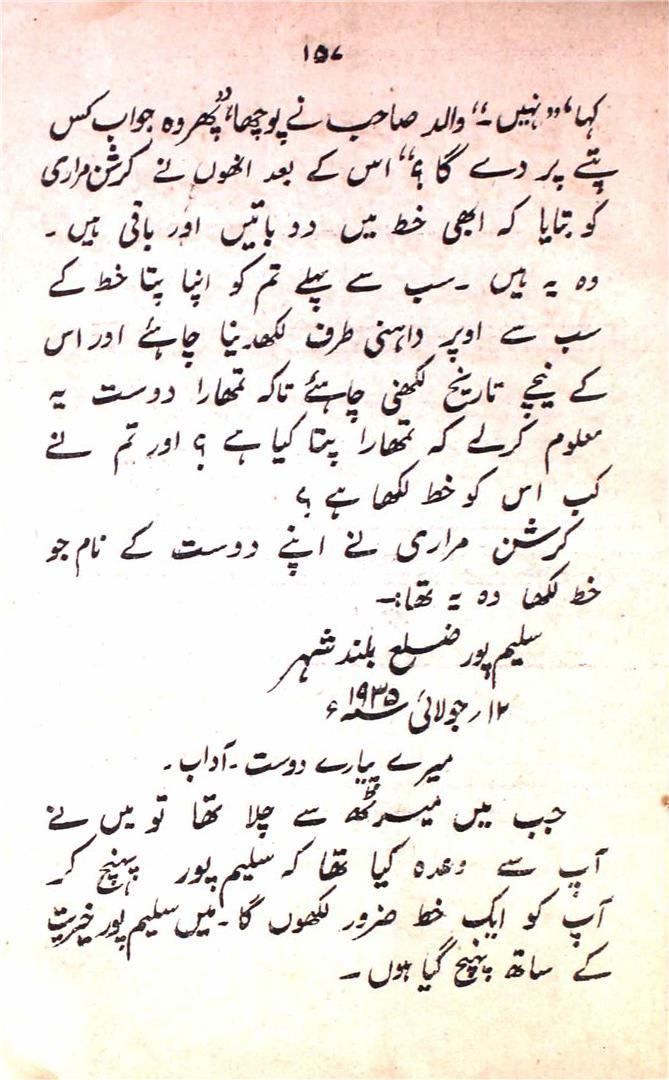 ۱۵۷
کہا، "نہیں۔" والد صاحب نے پوچھا، "پھر وہ جواب کس
پتے پر دے گا؟" اس کے بعد انھوں نے کرشن مراری
کو بتایا کہ ابھی خط میں دو باتیں اور باقی ہیں۔
وہ یہ ہیں ۔سب سے پہلے تم کو اپنا پتا خط کے
سب سے اوپر داہنی طرف لکھدینا چاہئے اور اس
کے نیچے تاریخ لکھنی چاہئے تاکہ تمھارا دوست یہ
معلوم کرلے کہ تمھارا پتا کیا ہے ؟ اور تم نے
کب اس کو خط لکھا ہے ؟
کرشن مراری نے اپنے دوست کے نام جو
خط لکھا وہ یہ تھا:۔
سلیم پور ضلع بلند شہر
۱۲ر جولائی سنہ ۱۹۳۵ء
میرے پیارے دوست ۔آداب ۔
جب میں میرٹھ سے چلا تھا تو میں نے
آپ سے وعدہ کیا تھا کہ سلیم پور پہنچ کر
آپ کو ایک خط ضرور لکھوں گا۔ میں سلیم پور خیریت
کے ساتھ پہنچ گیا ہوں ۔